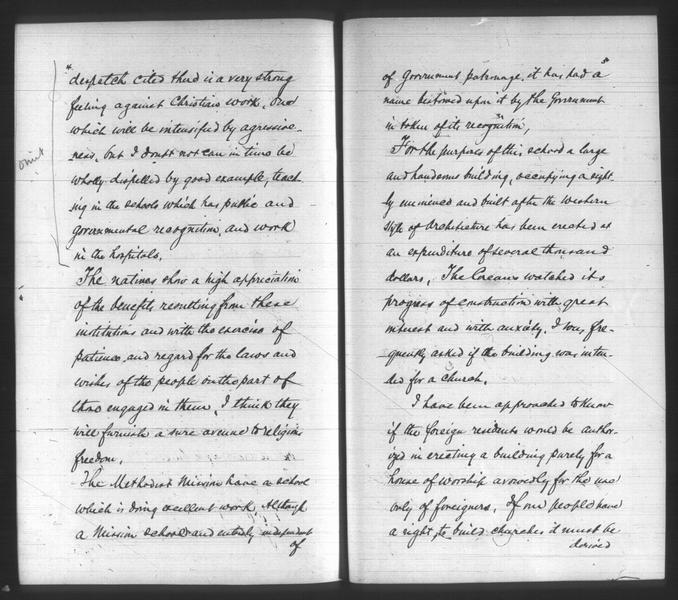 despatch cited there is a very strong
feeling against Christian work, one
which will be intensified by agressive-
ness, but I doubt not can in time be
wholly dispelled by good example, teach-
ing in the schools which has public and
governmental recognition, and work
in the hospitals.
omit
The natives show a high appreciation
of the benefits resulting from these
institutions and with the exercise of
patience and regard for the laws and
wishes of the people on the part of
those engaged in them, I think they
will furnish a sure avenue to religious
freedom.
The Methodist Mission have a school
which is doing excellent work. Although
a Mission school and entirely independent
of
of Government patronage, it has had a
name bestowed upon it by the Government
in token of its recognition,
For the purposes of this school a large
and handsome building, occupying a sight-
ly eminence and built after the western
style of Architecture has been erected at
an expenditure of several thousand
dollars. The Coreans watched its
progress of construction with great
interest and with anxiety. I was fre-
quently asked if the building was inten-
ded for a church.
I have been approached to know
if the foreign residents would be author-
ized in erecting a building purely for a
house of worship avowedly for the use
only of foreigners. If our people have
a right to build churches it must be
derived